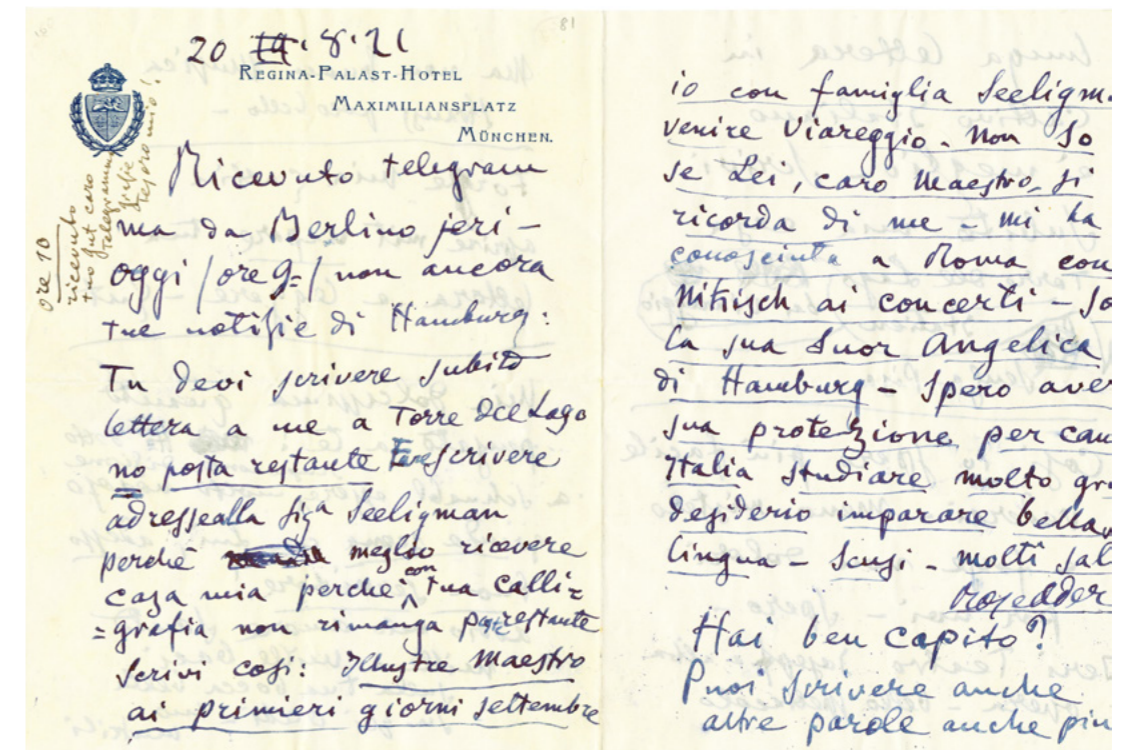 20 8.21
REGINA-PALAST-HOTEL
MAXIMILIANSPLATZ
MÜNCHEN.
ore 10
ricevuto
tuo caro
telegramma
tesoro mio!
Ricevuto telegram
ma da Berlino jeri -
oggi (ore 9-) non ancora
tue notizie di Hamburg:
Tu devi scrivere subito
lettera a me a Torre del Lago
no posta restante scrivere
adresse alla Siga Seeligman
perchè meglio ricevere
casa mia perchè con tua calli=
=grafia non rimanga restante
Scrivi così: Illustre Maestro
ai primieri giorni settembre
io con famiglia Seeligm
venire Viareggio. Non so
se Lei, caro Maestro, si
ricorda di me - mi ha
conosciuta a Roma con
Nikisch ai concerti - So
la sua Suor Angelica
di Hamburg - Spero aver
sua protezione per can
Italia studiare molto gr
desiderio imparare bella
lingua - Scusi - molti sal
Hai ben capito?
Puoi scrivere anche
altre parole anche piu